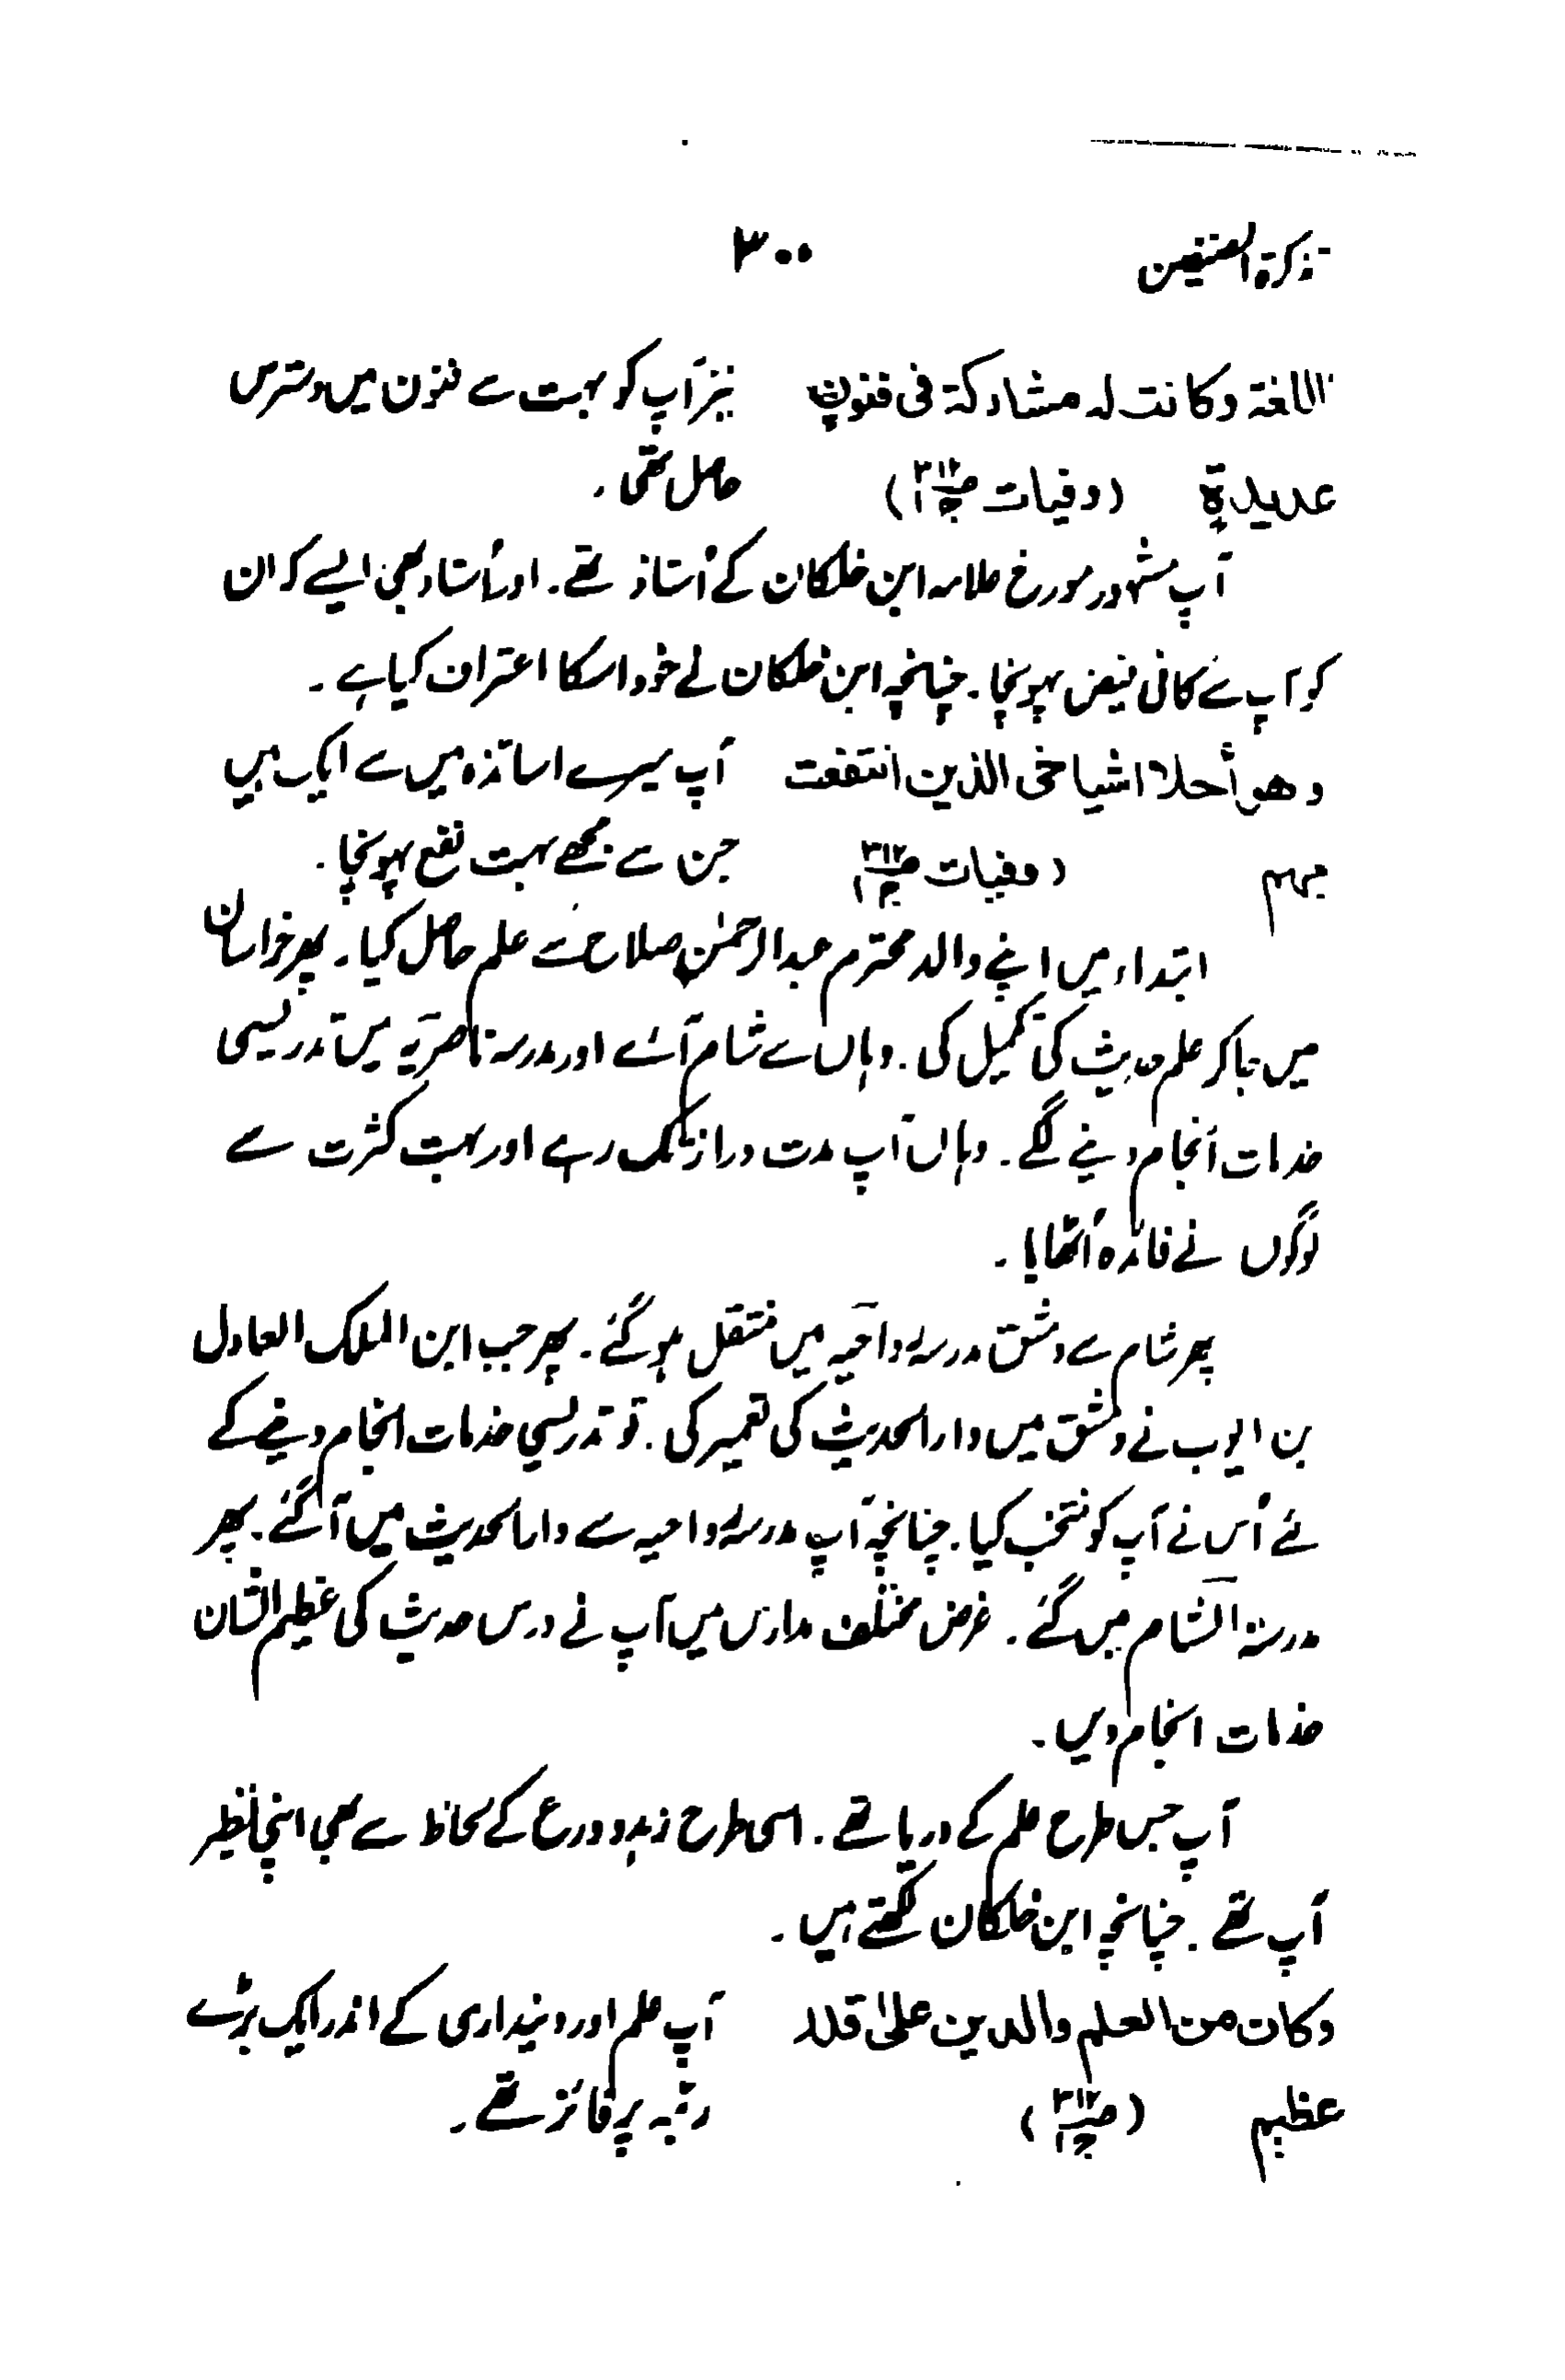 تذکرۃ المصنفین ۳۰۰
اللغۃ وکانت لہ مشارکۃ فی فنونٍ نیز آپ کو بہت سے فنون میں دسترس
عدیدۃٍ (وفیات ص۳۱۲ ج۱) حاصل تھی۔
آپ مشہور مورخ علامہ ابن خلکان کے اُستاذ تھے۔ اور اُستاد بھی ایسے کہ ان
کو آپ سے کافی فیض پہونچا۔ چنانچہ ابن خلکان نے خود اسکا اعتراف کیا ہے۔
وھو أحد اشیاخی الذین انتفعت آپ میرے اساتذہ میں سے ایک ہیں
بہم (وفیات ص۳۱۲ ج۱) جن سے مجھے بہت نفع پہونچا۔
ابتداء میں اپنے والد محترم عبدالرحمٰن صلاح سے علم حاصل کیا۔ پھر خراسان
میں جاکر علم حدیث کی تکمیل کی۔ وہاں سے شام آئے اور مدرسہ ناصریّہ میں تدریسی
خدمات انجام دینے لگے۔ وہاں آپ مدت دراز تک رہے اور بہت کثرت سے
لوگوں نے فائدہ اُٹھایا۔
پھر شام سے دمشق مدرسہ رواحیّہ میں منتقل ہوگئے۔ پھر جب ابن الملک العادل
بن ایوب نے دمشق میں دارالحدیث کی تعمیر کی۔ تو تدریسی خدمات انجام دینے کے
لئے اُس نے آپ کو منتخب کیا۔ چنانچہ آپ مدرسہ رواحیہ سے دارالحدیث میں آگئے۔ پھر
مدرسۃ الشام میں گئے۔ غرض مختلف مدارس میں آپ نے درس حدیث کی عظیم الشان
خدمات انجام دیں۔
آپ جس طرح علم کے دریا تھے۔ اسی طرح زہد و ورع کے لحاظ سے بھی اپنی نظیر
آپ تھے۔ چنانچہ ابن خلکان لکھتے ہیں۔
وکان من العلم والدین علیٰ قدر آپ علم اور دینداری کے اندر ایک بڑے
عظیم (ص۳۱۲ ج۱) رتبہ پر فائز تھے۔